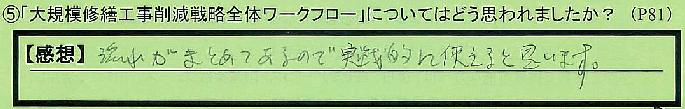 ⑤「大規模修繕工事削減戦略全体ワークフロー」についてはどう思われましたか？（P81）
【感想】流れがまとめてあるので実践的に使えると思います。